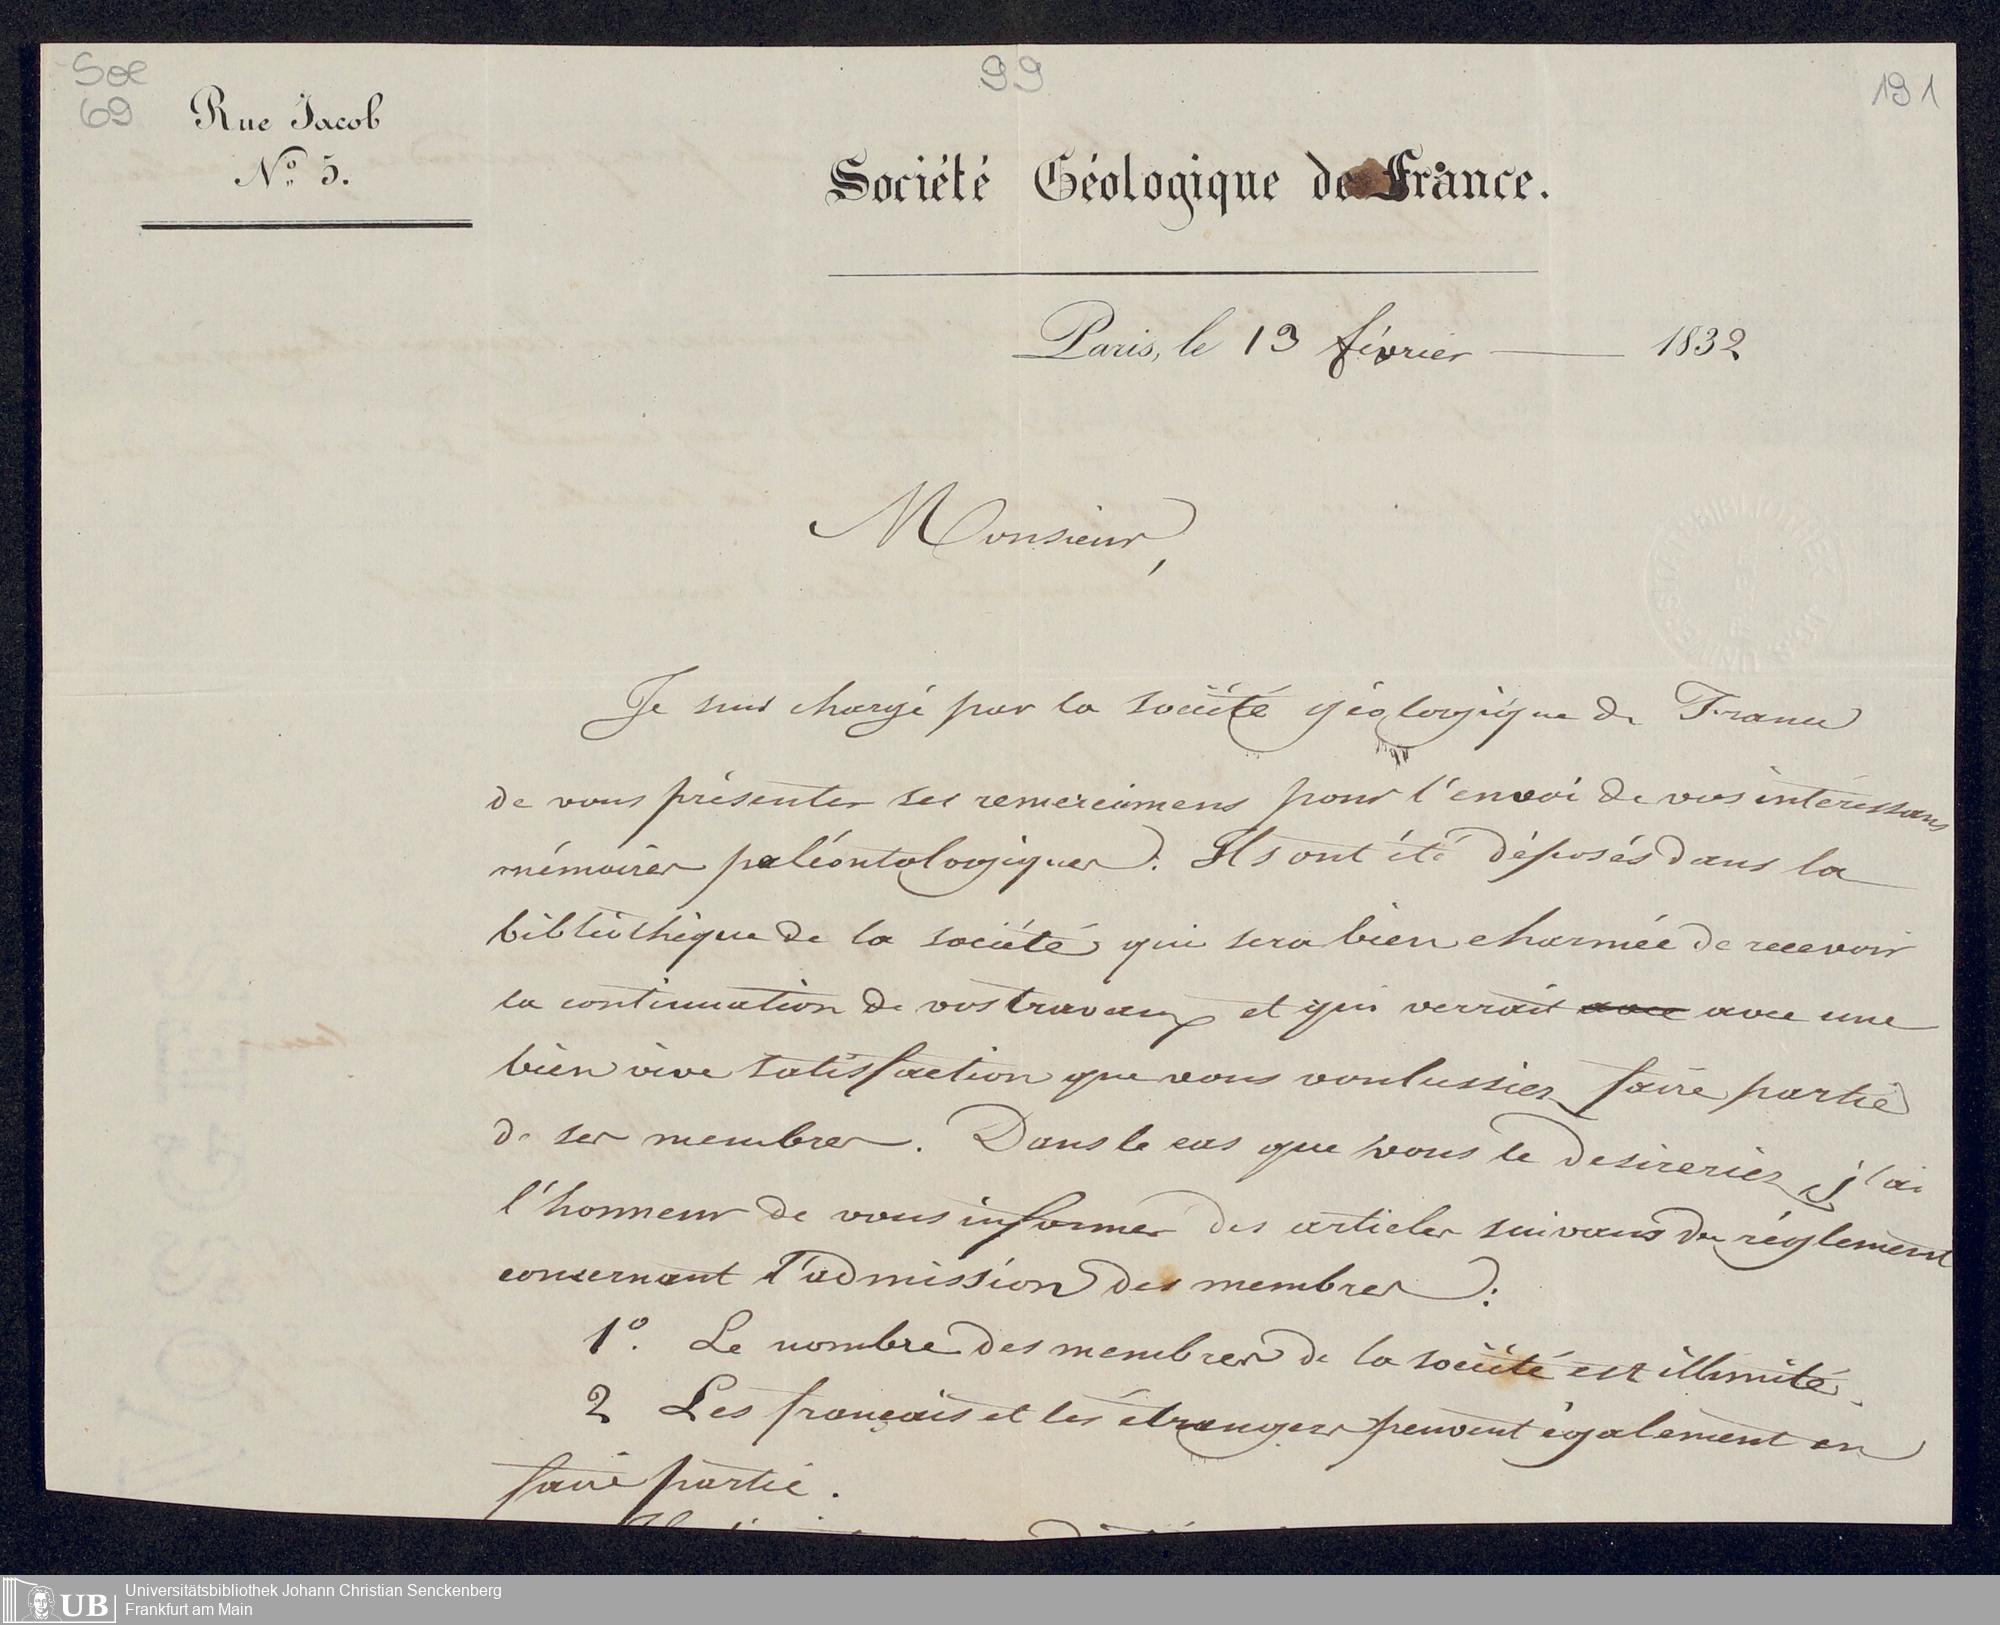 Soc
69
99
191
Rue Jacob
N° 5.
Société Géologique de France.
Paris, le 13 février 1832
Monsieur,
Je suis chargé par la société géologique de France
de vous présenter ses remercimens pour l'envoi de vos intéressans
mémoires paléontologiques. Ils ont été déposés dans la
bibliothèque de la société qui sera bien charmée de recevoir
la continuation de vos travaux et qui verrait avec avec une
bien vive satisfaction que vous voulussiez faire partie
de ses membres. Dans le cas que vous le desireriez, j'ai
l'honneur de vous informer des articles suivans du réglement
concernant l'admission des membres :
1°. Le nombre des membres de la société est illimité.
2 Les français et les étrangers peuvent également en
faire partie.
UB
Universitätsbibliothek Johann Christian Senckenberg
Frankfurt am Main